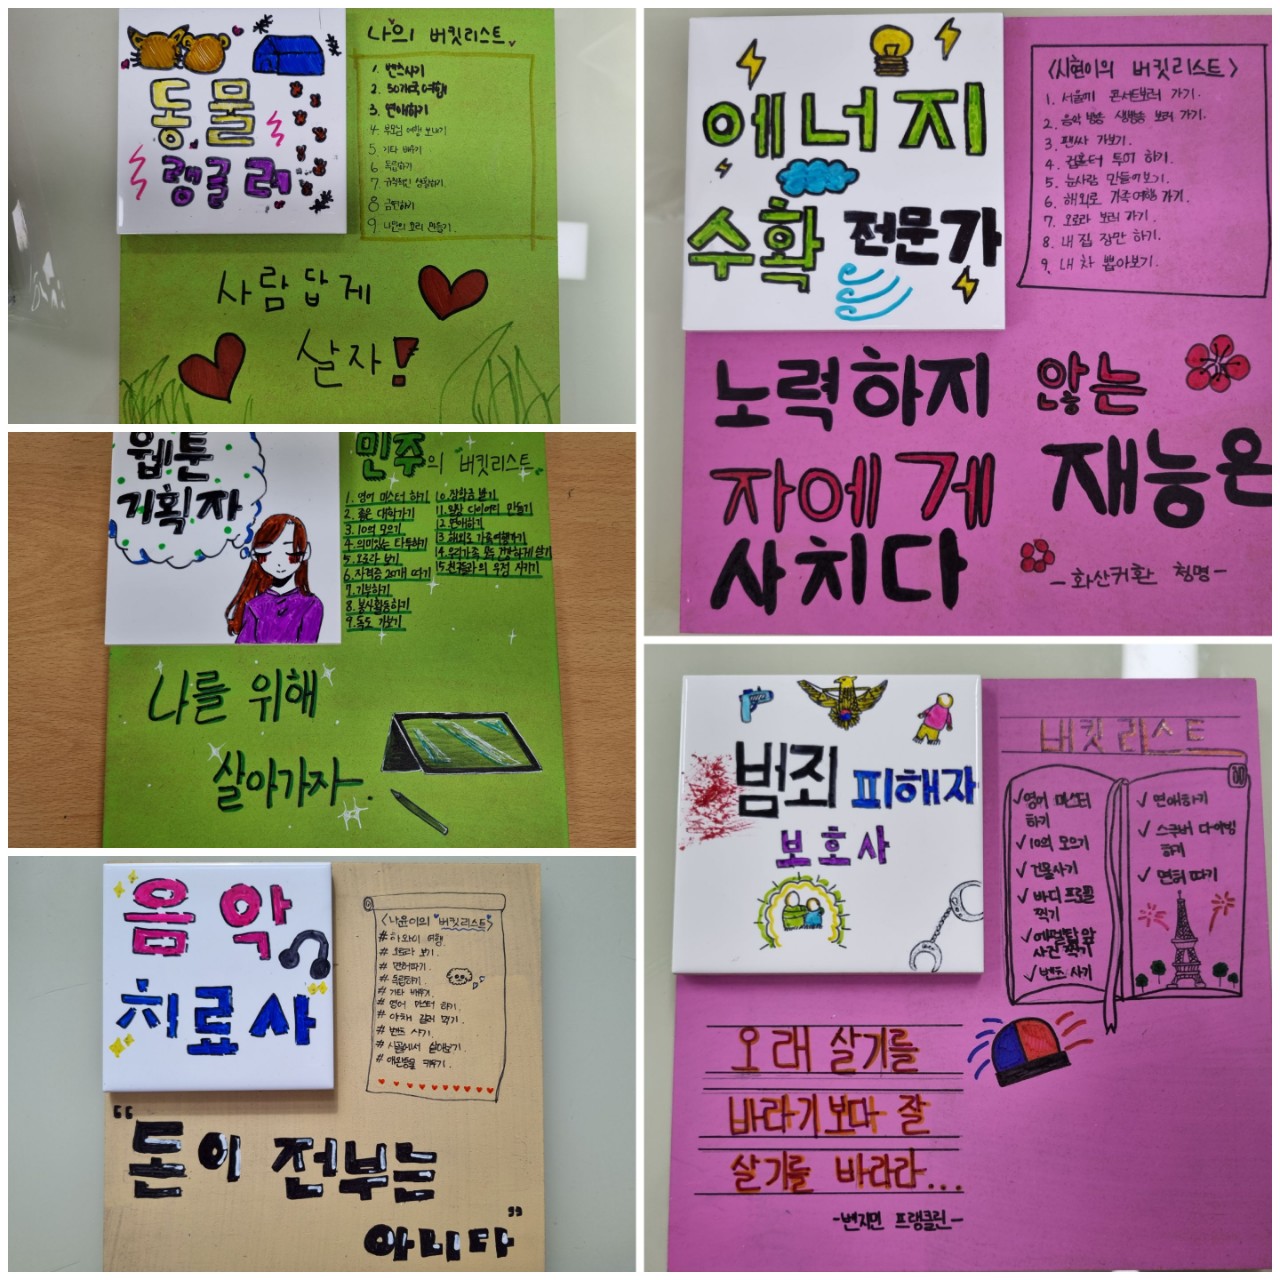 동물
랭글러
나의 버킷리스트
1. 벤츠사기
2. 50개국 여행
3. 연애하기
4. 부모님 여행 보내기
5. 기타 배우기
6. 독립하기
7. 규칙적인 생활하기.
8 금연하기
9. 나만의 요리 만들기.
사람답게
살자!
에너지
수확 전문가
<시현이의 버킷리스트>
1. 서울에 콘서트보러 가기.
2. 음악 방송 생방송 보러 가기.
3. 팬싸 가보기.
4. 컵홀더 투어 하기.
5. 눈사람 만들어보기.
6. 해외로 가족여행 가기.
7. 오로라 보러 가기.
8. 내 집 장만 하기.
9. 내 차 뽑아보기.
노력하지 않는
자에게 재능은
사치다
-화산귀환 청명-
웹툰
기획자
민주의 "버킷리스트"
1. 영어 마스터 하기
2. 좋은 대학가기
3. 10억 모으기
4. 의미있는 타투하기
5. 오로라 보기
6. 자격증 20개 따기
7. 기부하기
8. 봉사활동하기
9. 독도 가보기
10. 장학금 받기
11. 일상 다이어리 만들기
12. 연애하기
13 해외로 가족여행가기
14. 우리가족 모두 건강하게 살기
15. 친구들과의 우정 지키기
나를 위해
살아가자.
범죄 피해자
보호사
버킷 리스트
✓영어 마스터
하기
✓10억 모으기
✓건물사기
✓바디 프로필
찍기
✓에펠탑 앞
사진 찍기
✓벤츠 사기
✓ 연애하기
✓ 스쿠버 다이빙
하기
✓ 면허 따기
오래 살기를
바라기보다 잘
살기를 바라라...
-벤자민 프랭클린-
음악
치료사
<나윤이의 버킷리스트>
# 하와이 여행.
# 오로라 보기.
# 면허따기.
# 독립하기.
# 기타 배우기.
# 영어 마스터 하기.
# 벤츠 사기.
# 시골에서 살아보기.
# 애완동물 키우기.
"돈이 전부는
아니다"